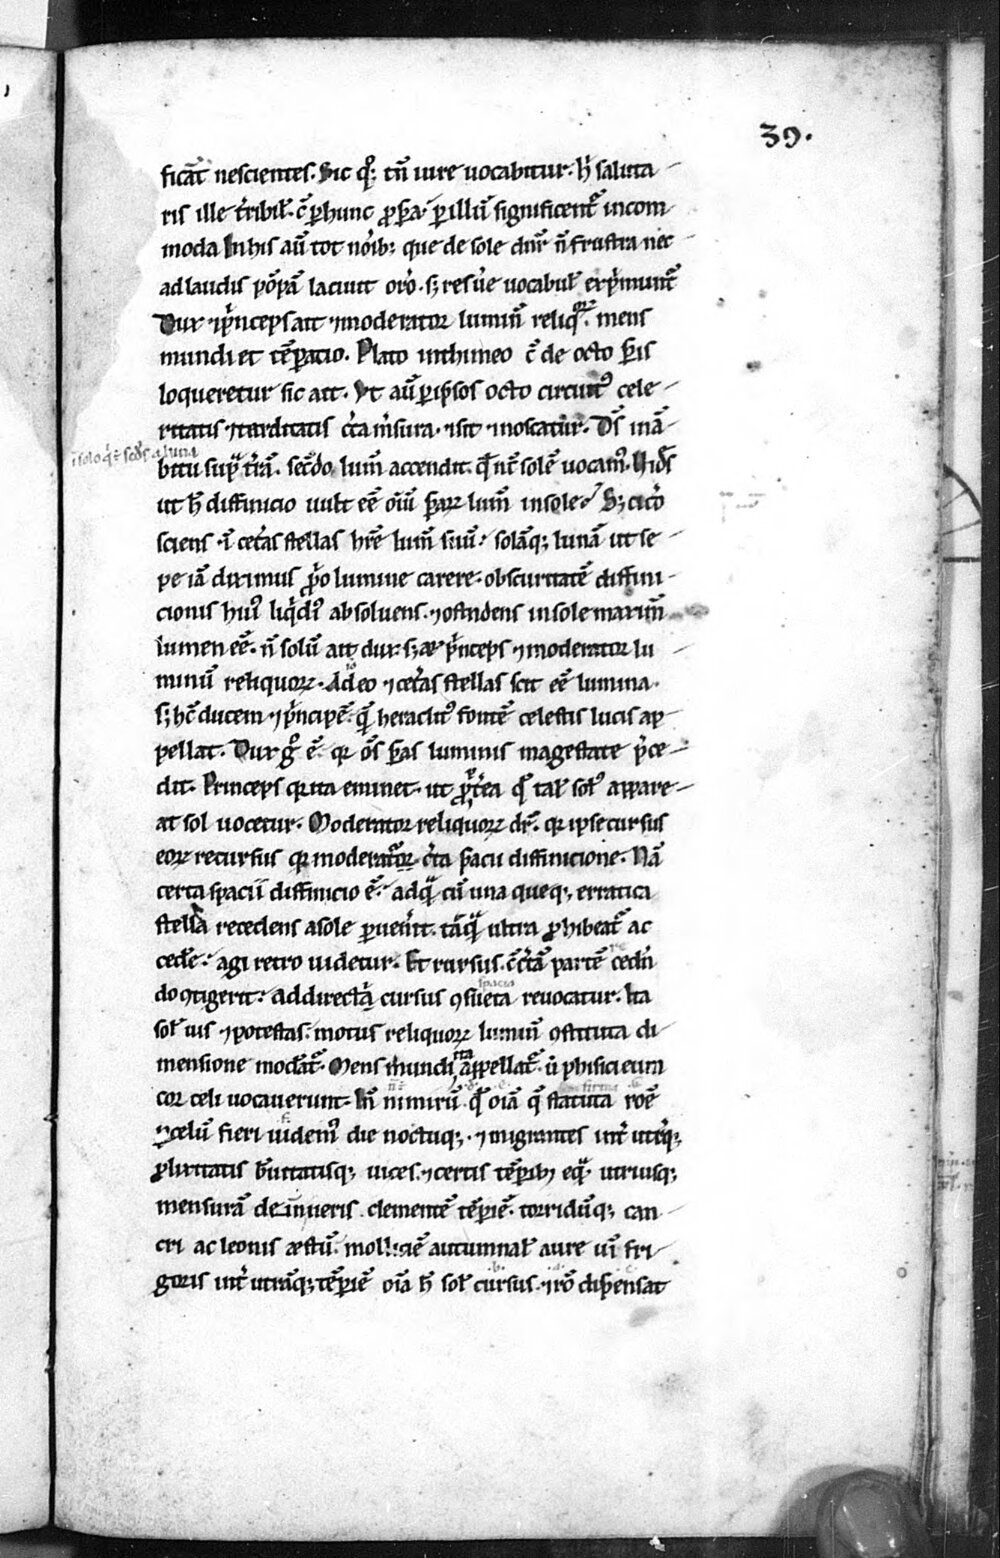 39.
ficāt nescientes. Sic qͦꝫ tn̄ iure uocabitur. h̓ saluta
ris ille t̓ribił. c̄ ꝑ hunc ꝓsꝑa. ꝑ illū significent᷑ incom
moda In his aū tot noı̓bꝫ que de sole dn̄r n̄ frustra nec
ad laudis pōpā lasciuit oro̓. sꝫ res ùe uocabuł exp̓munt᷑
Dux ⁊ p̓nceps ait ⁊ moderator luminū reliqꝝ. mens
mundi et tēꝑatio. Plato in thimeo c̄ de octo sꝑis
loqueretur sic ait. Vt aū ꝑ ip̄sos octo circuitꝰ cele
ritatis ⁊ tarditatis c̓ta m̓sura. ⁊ sit ⁊ noscatur. Ds̄ in ā
ı̄ solo q̓ ē scd̄s a luna
bitu sup̓ t̓rā. sec̄do lum̄ accendit. qd̄ nc̄ solē uocamꝰ. Vid̓s
ut h̓ diffinicio uult eē oı̄ū sꝑarꝝ lum̄ in sole. Sꝫ cic̓o
sciens ⁊ cet̓as stellas hr̄e lum̄ suū. solāqꝫ lunā ut se
pe iā diximus ꝓp̓o lumine carere. obscuritatē diffini
cionis huiꝰ liq̓diꝰ absoluens. ⁊ ostendens in sole maximū
lumen eē. n̄ solū ait dux. sꝫ ⁊ p̓nceps ⁊ moderator lu
minū reliquorꝝ. Adeo ⁊ cet̓as stellas scit eē lumina.
sꝫ hc̄ ducem ⁊ p̓ncipē. quē heraclitꝰ fontē celestis lucis ap
pellat. Dux gͦ ē. qꝛ oēs sꝑas luminis magestate p̓ce
dit. Princeps qꝛ ita eminet. ut ꝓpt̓ea qd̄ tał solꝰ appare
at sol uocetur. Moderator reliquorꝝ dr̄. qꝛ ipse cursus
eorꝝ recursus qꝫ moderatur. c̓ta spacii diffinicione. Nā
certa spacii diffinicio ē. ad quā cū una queqꝫ erratica
stella recedens a sole ꝑuen̓it. tāquā ultra ꝓhibeat᷑ ac
cede᷑. agi retro uidetur. Et rursus. c̄ c̓tā partē recedē
do ꝯtigerit. ad directū cursus ꝯsueta reuocatur. Ita
spacia
soł uis ⁊ potestas. motus reliquorꝝ luminū ꝯstituta di
mensione modat᷑. Mens mundi ita appellat᷑. ut phisici eum
cor celi uocauerunt. In̄ nimirū. qd̄ oı̄a q̄ statuta roē
ꝑ celū fieri uidemꝰ die noctuqꝫ. ⁊ migrantes int̓ utrāqꝫ
ꝓlixitatis b̓uitatisqꝫ uices. ⁊ certis tēꝑibꝫ equā utriusqꝫ
mensurā dein ueris clementē tēꝑiē. torridūqꝫ can
cri ac leonis æstū. molliciē autumnał aure uim fri
goris int̓ utrāqꝫ tēꝑiē oı̄a h̓ soł cursus. ⁊ rō dispensat